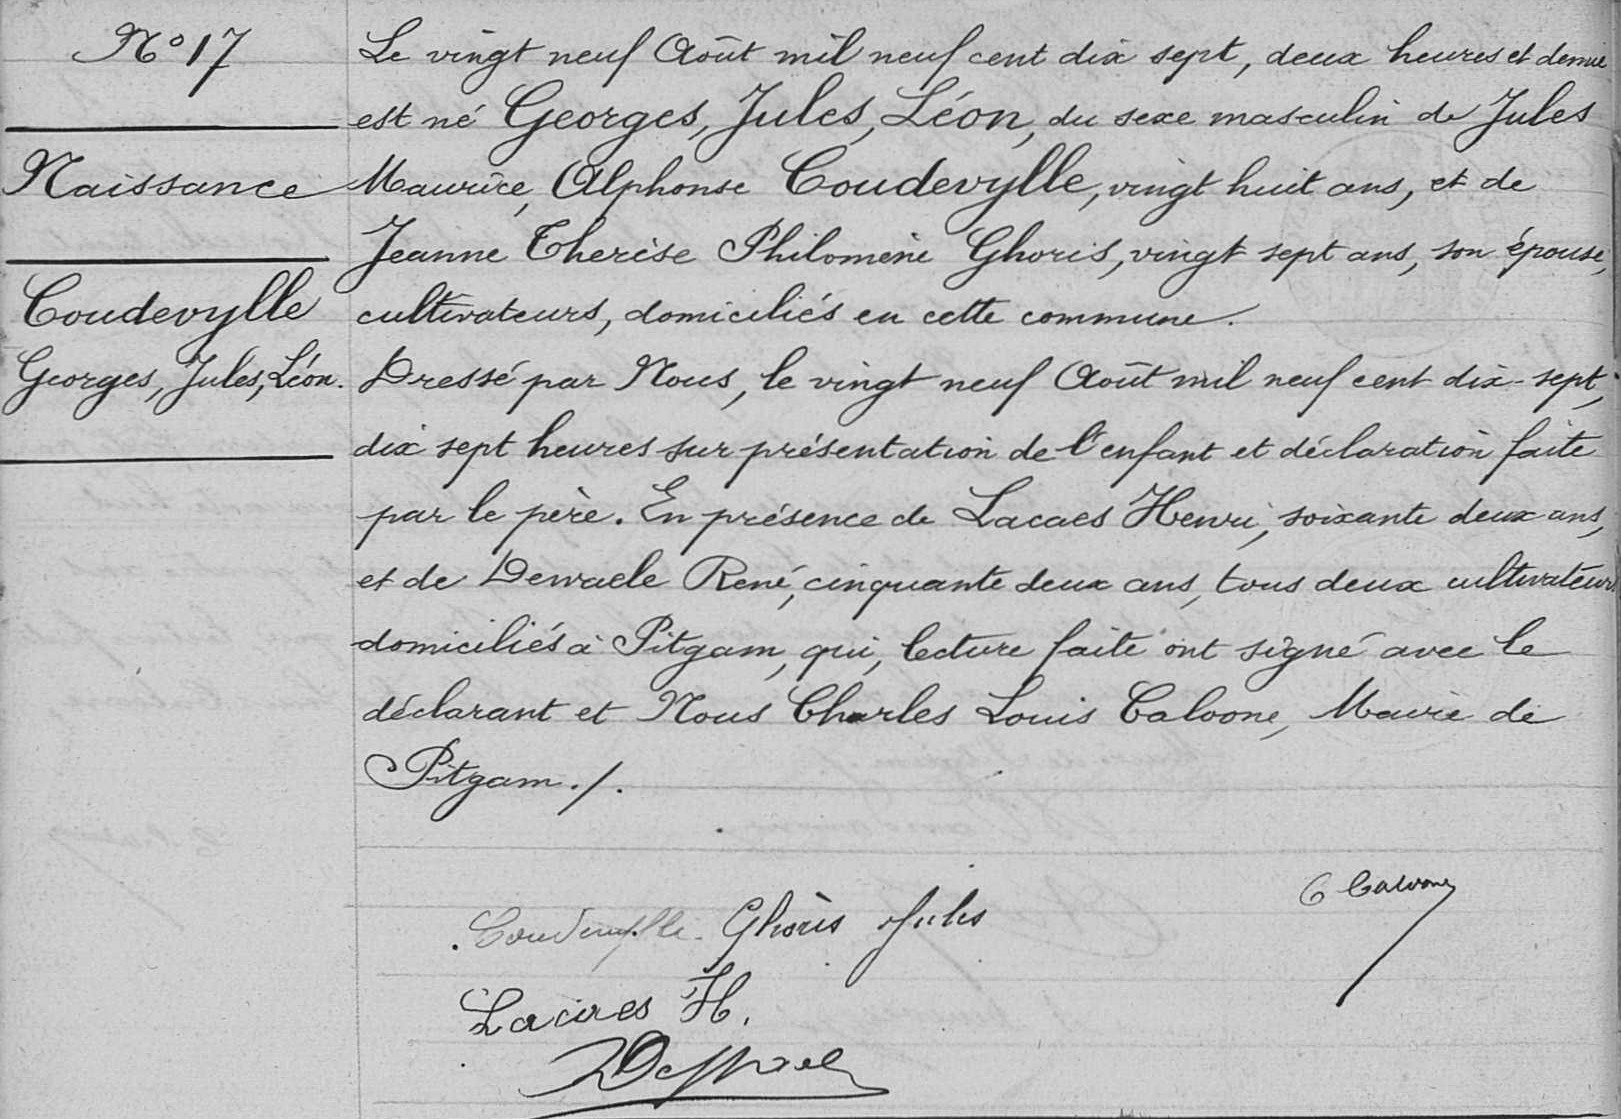 N° 17
Naissance
Coudevylle
Georges, Jules, Léon.
Le vingt neuf Août mil neuf cent dix sept, deux heures et demie
est né Georges, Jules, Léon, du sexe masculin de Jules
Maurice, Alphonse Coudevylle, vingt huit ans, et de
Jeanne Therèse Philomène Ghoris, vingt sept ans, son épouse,
cultivateurs, domiciliés en cette commune.
Dressé par Nous, le vingt neuf Août mil neuf cent dix-sept,
dix sept heures sur présentation de l'enfant et déclaration faite
par le père. En présence de Lacaes Henri, soixante deux ans,
et de Dewaele René, cinquante deux ans, tous deux cultivateurs
domiciliés à Pitgam, qui, lecture faite ont signé avec le
déclarant et Nous Charles Louis Calvone, Maire de
Pitgam ./.
Coudevylle-Ghoris Jules
C Calvone
Lacaes H.